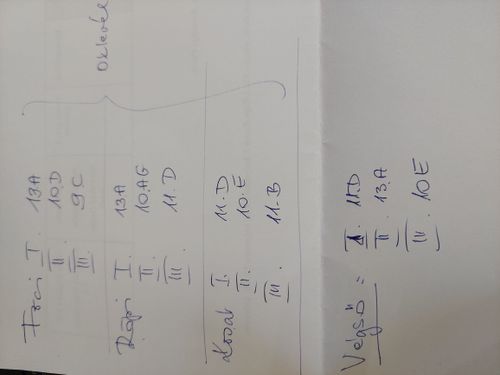 Foci I. 13A
II. 10.D
III. 9.C
Röpi I. 13A
II. 10.AG
III. 11.D
Kosár I. 11.D
II. 10.E
III. 11.B
Oklevél
Végső = I. 11.D
II. 13.A
III. 10E